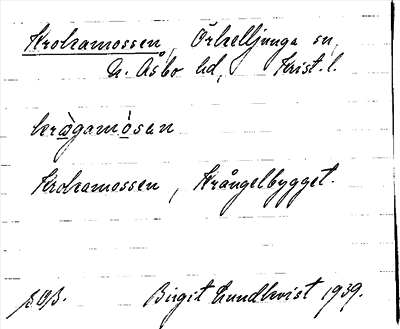 Krokamossen, Örkelljunga sn,
N. Åsbo hd, Krist. l.
kràgamósen
Krokamossen, Krångelbygget.
Birgit Lundkvist 1939.